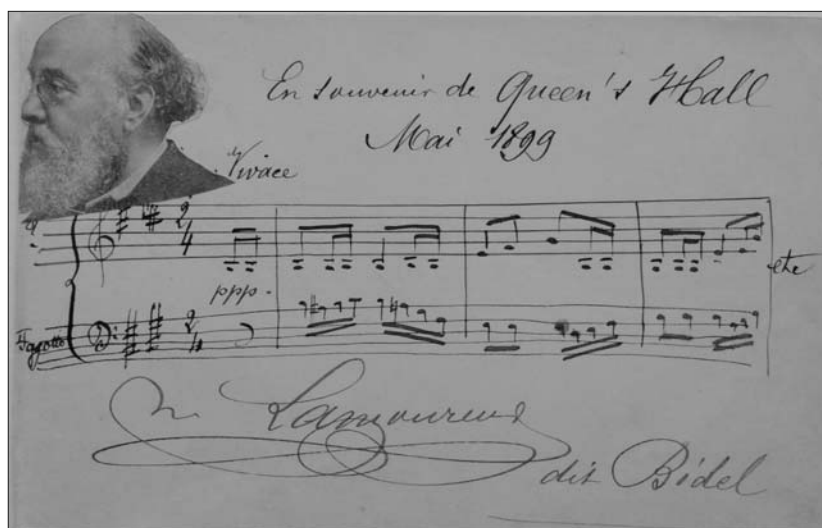 En souvenir de Queen's Hall
Mai 1899
Vivace
2/4
ppp.
etc
Fagotto
2/4
Lamoureux
dit Bidel